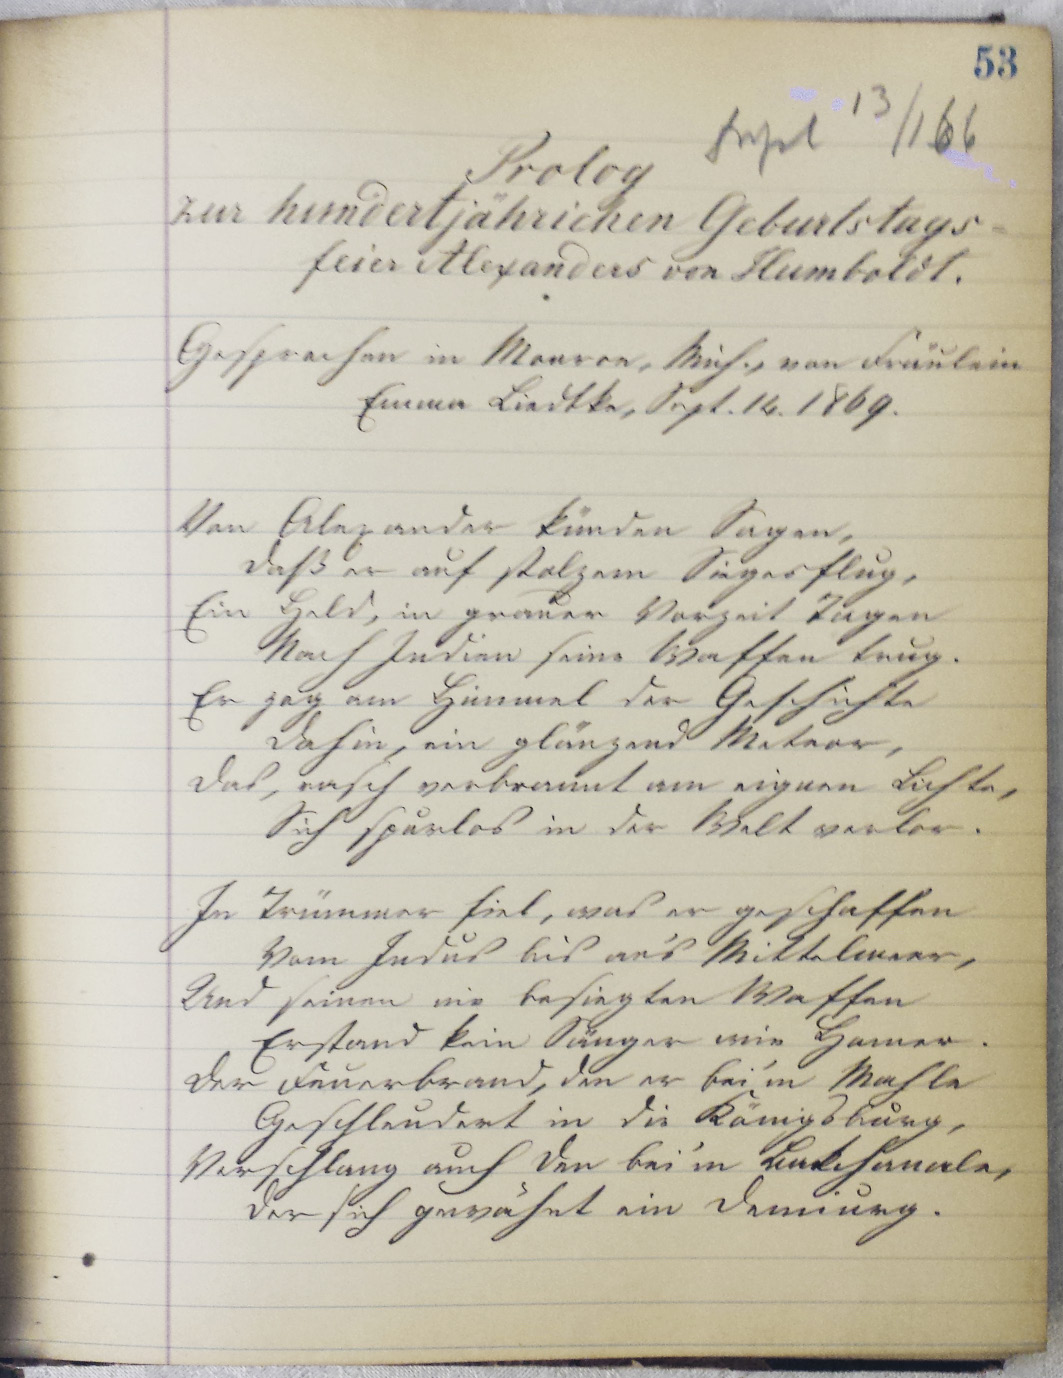 53
Sept 13/166
Prolog
zur hundertjährichen Geburtstags-
feier Alexanders von Humboldt.
Gesprochen in Monroe, Mich., von Fräulein
Emma Liedtke, Sept. 14. 1869.
Von Alexander künden Sagen,
Daß er auf stolzem Siegesflug,
Ein Held, in grauer Vorzeit Tagen
Nach Indien seine Waffen trug.
Er zog am Himmel der Geschichte
Dahin, ein glänzend Meteor,
Das, rasch verbrannt am eignen Lichte,
Sich spurlos in der Welt verlor.
In Trümmer fiel, was er geschaffen
Vom Indus bis an's Mittelmeer,
Und seinen nie besiegten Waffen
Erstand kein Sänger wie Homer.
Der Feuerbrand, den er bei'm Mahle
Geschleudert in die Königsburg,
Verschlang auch den bei'm Bakchanale,
Der sich gewähnt ein Demiurg.